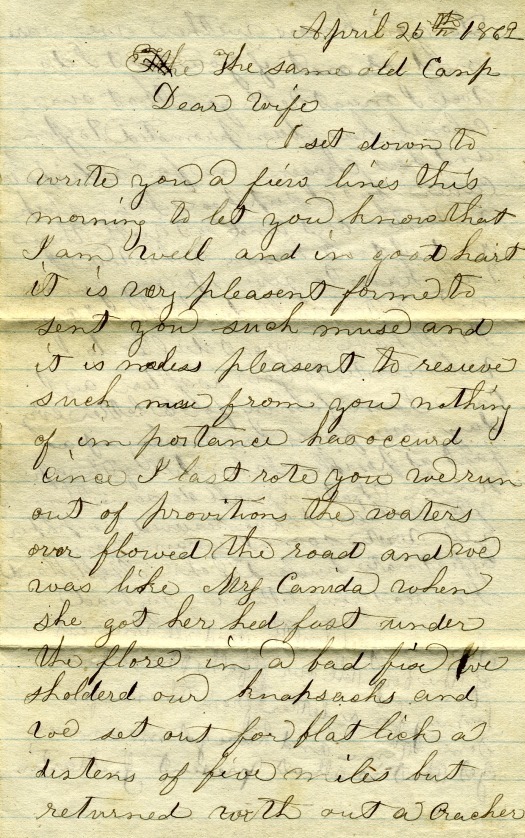 April 26th 1862
The The same old Camp
Dear Wife
I set down to
write you a fiew lines this
morning to let you know that
I am well and in good hart
it is very pleasent forme to
sent you such nuse and
it is no less pleasent to resieve
such nuse from you nothing
of im portance has occurd
cince I last rote you we run
out of provitions the waters
over flowed the road and we
was like Mrs Canida when
she got her hed fast under
the flore in a bad fix We
sholderd our knapsacks and
we set out for flat lick a
distens of five miles but
returned with out a cracker